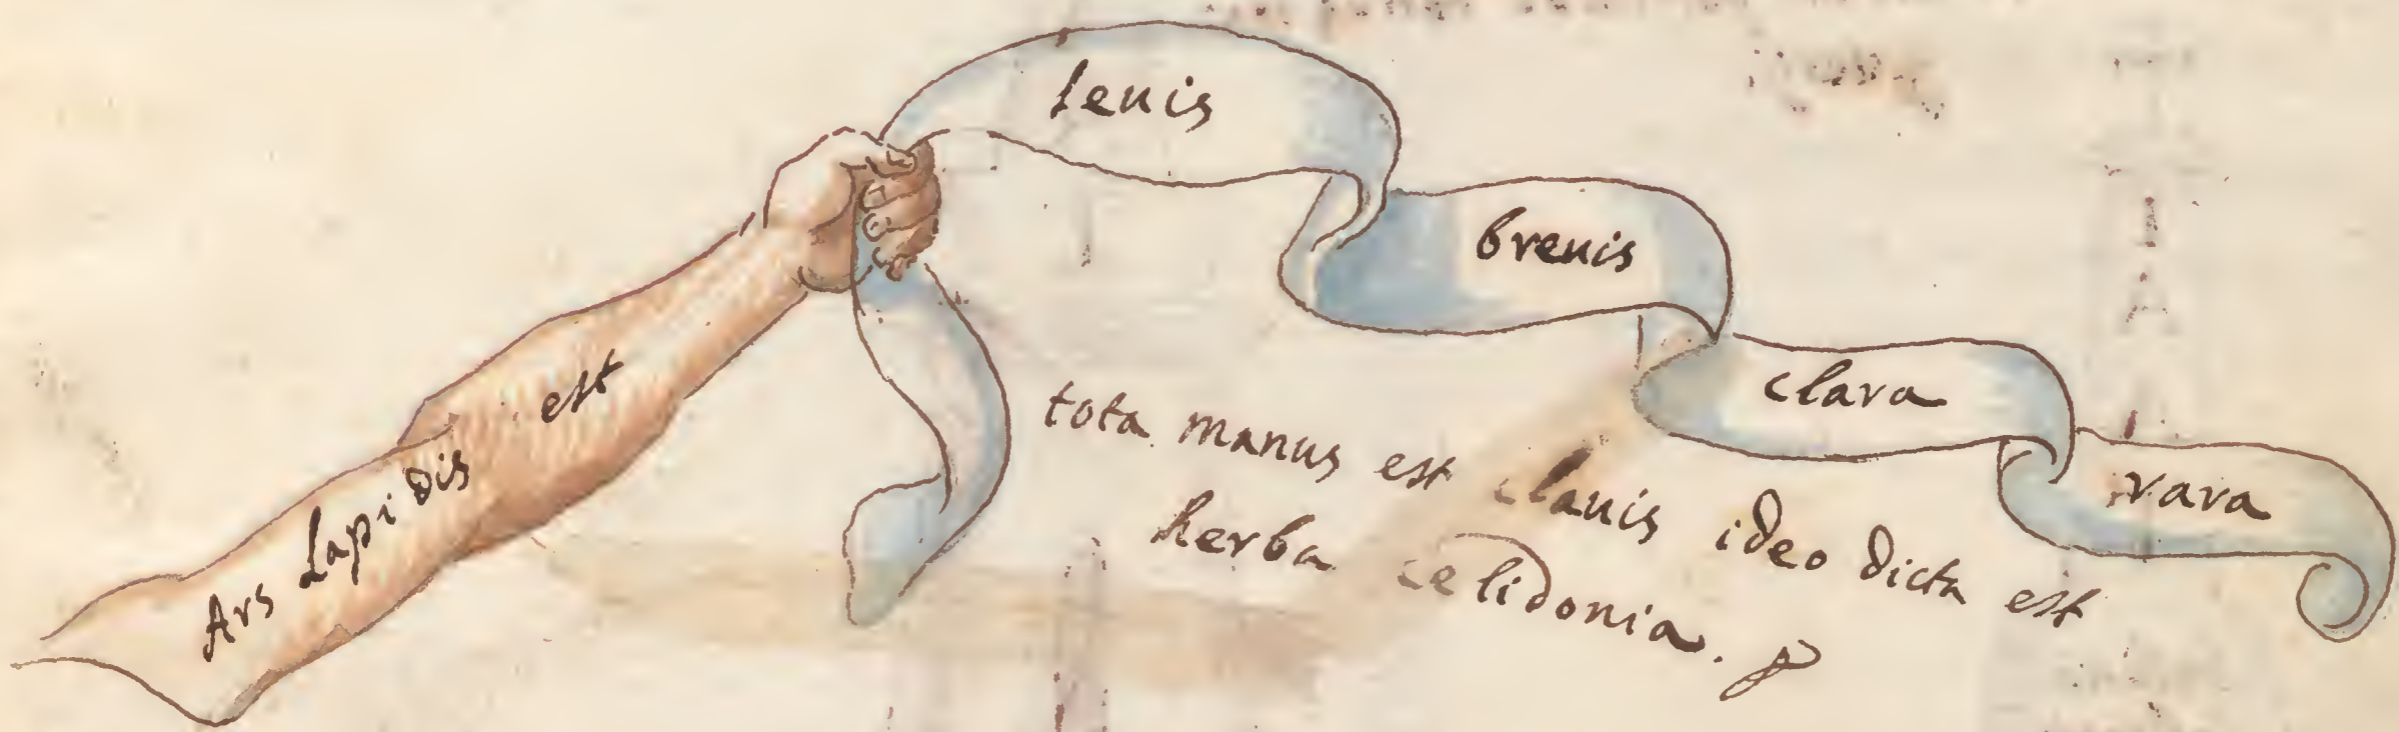 Ars Lapidis est
leuis
breuis
clara
rara
tota manus est clauis ideo dicta est
herba celidonia.